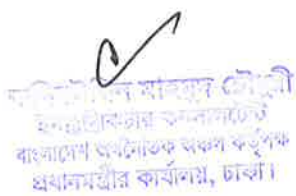 মাহমুদ চৌধুরী
কনসালটেন্ট
বাংলাদেশ অর্থনৈতিক অঞ্চল কর্তৃপক্ষ
প্রধানমন্ত্রীর কার্যালয়, ঢাকা।